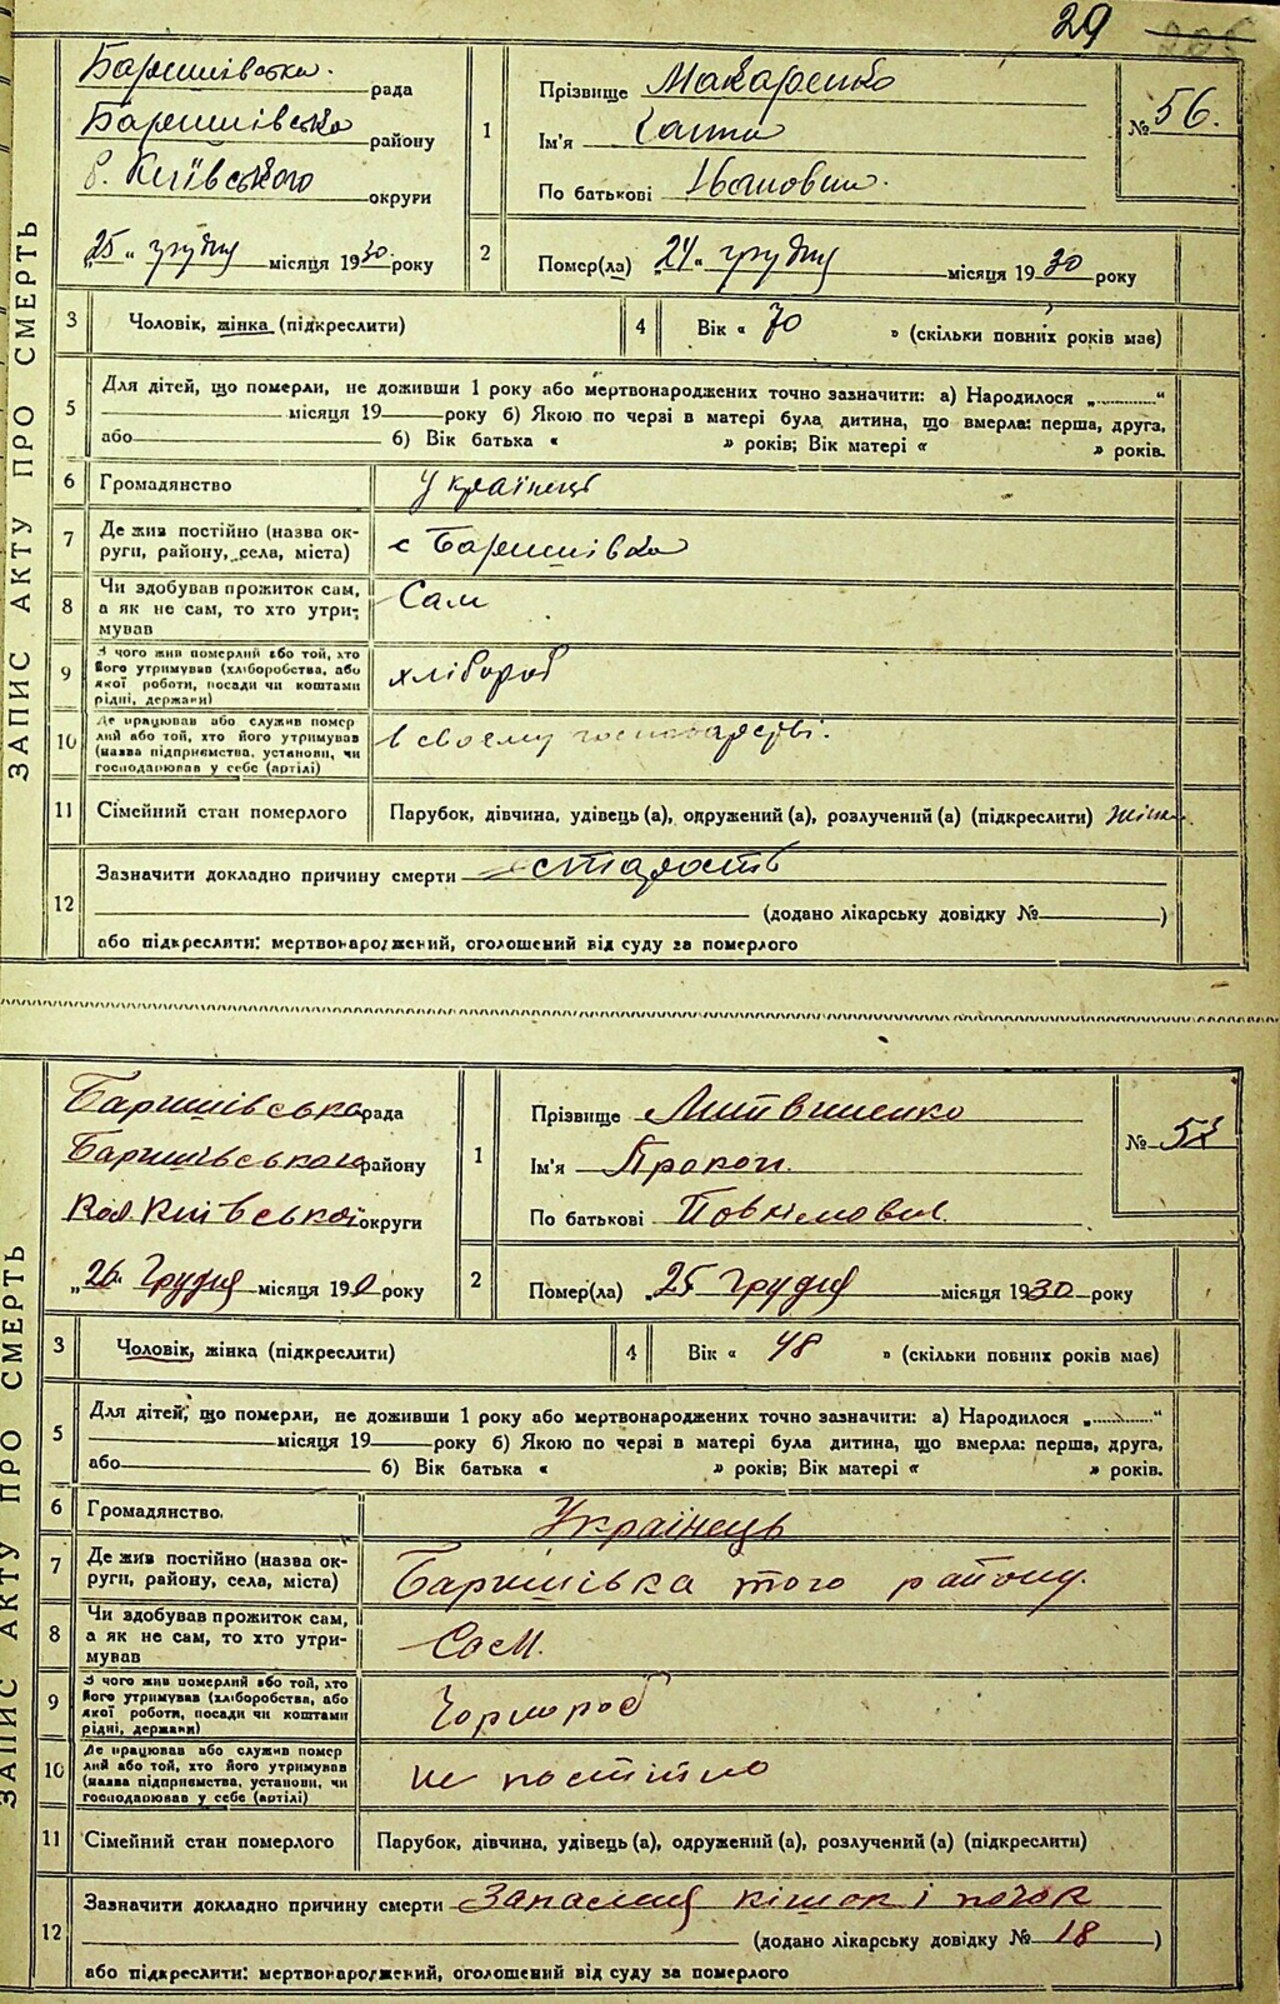 29
Баришівська рада
Баришівського району
Київського округи
„25“ грудня місяця 1930 року
1
Прізвище Макаренко
Ім'я Ганна
По батькові Івановна
№ 56.
2
Помер(ла) „24“ грудня місяця 1930 року
3
Чоловік, жінка (підкреслити)
4
Вік « 70 » (скільки повних років має)
5
Для дітей, що померли, не доживши 1 року або мертвонароджених точно зазначити: а) Народилося „..........“
місяця 19 року б) Якою по черзі в матері була дитина, що вмерла: перша, друга,
або б) Вік батька « » років; Вік матері « » років.
6
Громадянство Українець
7
Де жив постійно (назва ок-
руги, району, села, міста) с Баришівка
8
Чи здобував прожиток сам,
а як не сам, то хто утри-
мував Сам
9
З чого жив померлий або той, хто
його утримував (хліборобства, або
якої роботи, посади чи коштами
рідні, держави) хлібороб
10
Де працював або служив помер
лий або той, хто його утримував
(назва підприємства, установи, чи
господарював у себе (артілі) в своєму господарстві.
11
Сімейний стан померлого Парубок, дівчина, удівець (а), одружений (а), розлучений (а) (підкреслити)
12
Зазначити докладно причину смерти старость
(додано лікарську довідку № )
або підкреслити: мертвонароджений, оголошений від суду за померлого
ЗАПИС АКТУ ПРО СМЕРТЬ
Баришівська рада
Баришівського району
Київської округи
„26“ Грудня місяця 19 року
1
Прізвище Литвиненко
Ім'я Прокоп
По батькові
№
2
Помер(ла) „25 Грудня місяця 1930 року
3
Чоловік, жінка (підкреслити)
4
Вік « 48 » (скільки повних років має)
5
Для дітей, що померли, не доживши 1 року або мертвонароджених точно зазначити: а) Народилося „..........“
місяця 19 року б) Якою по черзі в матері була дитина, що вмерла: перша, друга,
або б) Вік батька « » років; Вік матері « » років.
6
Громадянство. Українець
7
Де жив постійно (назва ок-
руги, району, села, міста) Баришівка того району.
8
Чи здобував прожиток сам,
а як не сам, то хто утри-
мував Сам.
9
З чого жив померлий або той, хто
його утримував (хліборобства, або
якої роботи, посади чи коштами
рідні, держави) Чорнороб
10
Де працював або служив помер
лий або той, хто його утримував
(назва підприємства, установи, чи
господарював у себе (артілі) не постійно
11
Сімейний стан померлого Парубок, дівчина, удівець (а), одружений (а), розлучений (а) (підкреслити)
12
Зазначити докладно причину смерти Запалння кішок і почок
(додано лікарську довідку № 18 )
або підкреслити: мертвонароджений, оголошений від суду за померлого
ЗАПИС АКТУ ПРО СМЕРТЬ